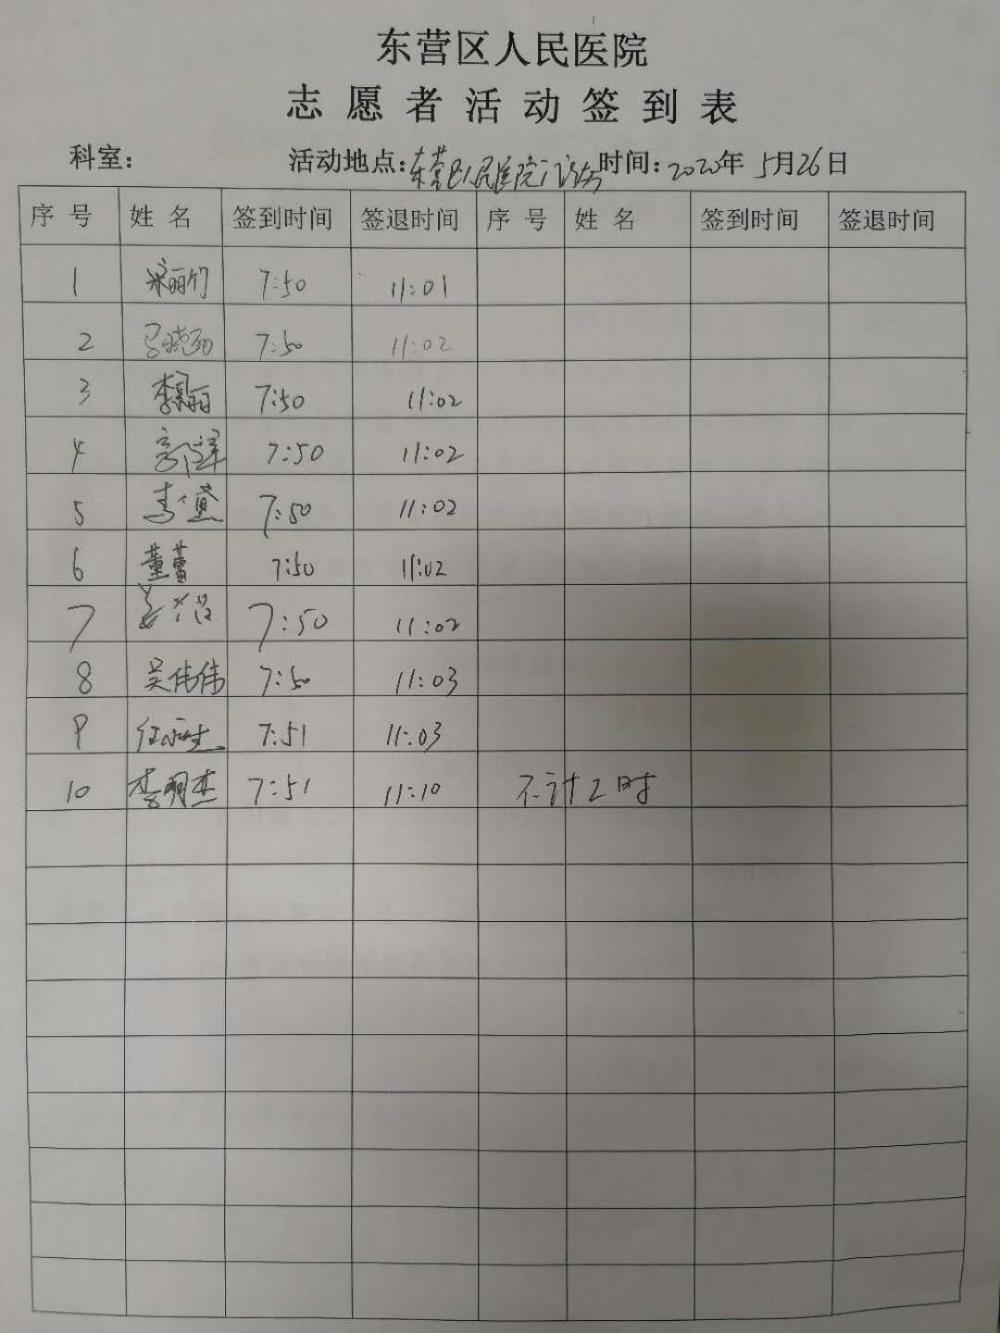 东营区人民医院
志愿者活动签到表
科室： 活动地点：东营区人民医院门诊 时间：2020年 5月26日
序号 姓名 签到时间 签退时间 序号 姓名 签到时间 签退时间
1 7:50 11:01
2 7:50 11:02
3 7:50 11:02
4 7:50 11:02
5 7:50 11:02
6 董蕾 7:50 11:02
7 7:50 11:02
8 吴伟伟 7:50 11:03
9 7:51 11:03
10 李明杰 7:51 11:10 不计工时